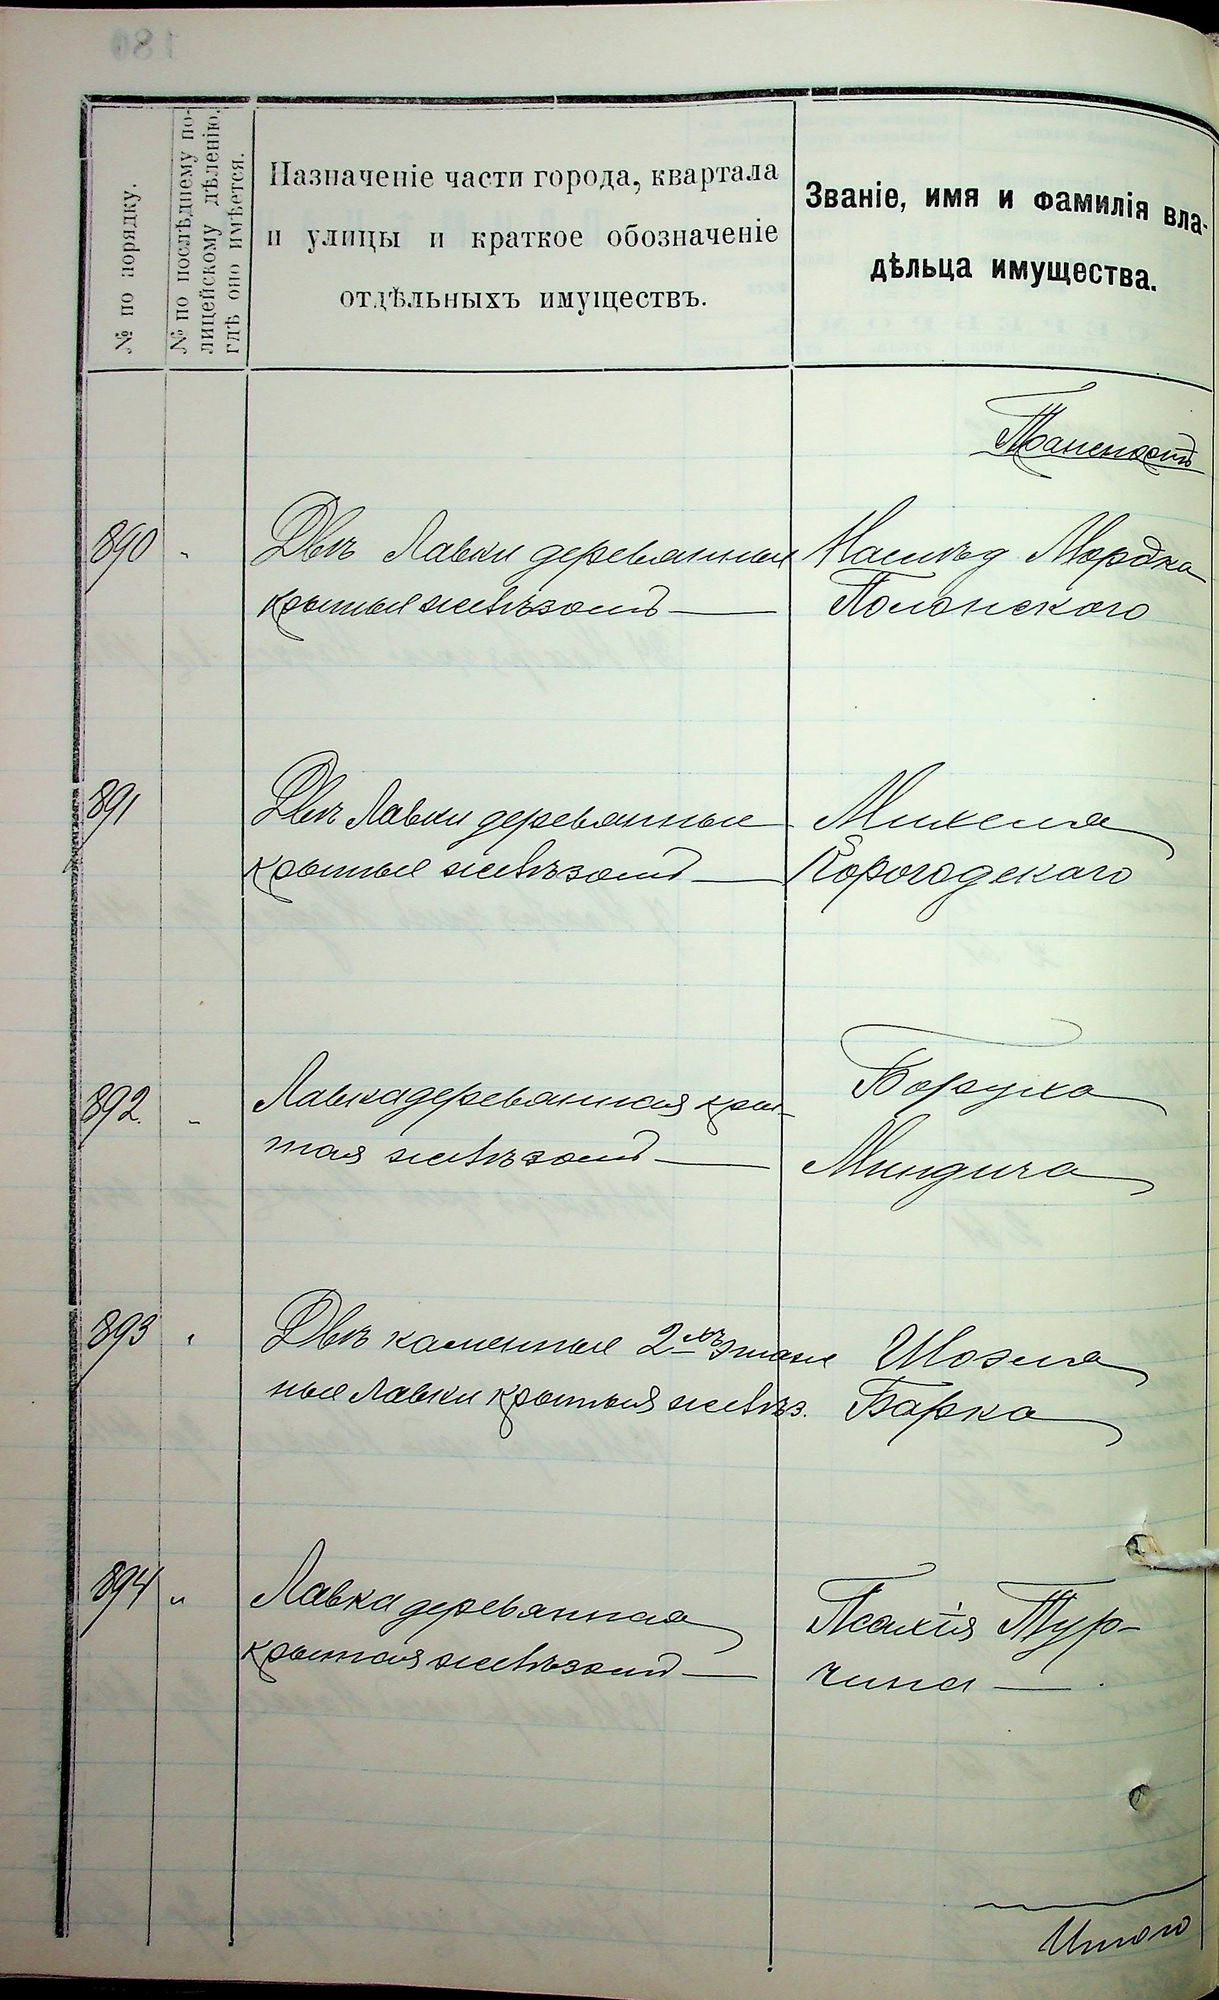 № по порядку.
№ по послѣднему по-
лицейскому дѣленію,
гдѣ оно имѣется.
Назначеніе части города, квартала
и улицы и краткое обозначеніе
отдѣльныхъ имуществъ.
Званіе, имя и фамилія вла-
дѣльца имущества.
Транспортъ
890 „ Двѣ Лавки деревянныя Наслѣд Мордка
крытыя желѣзомъ — Полонского
891 Двѣ Лавки деревянные Михеля
крытыя желѣзомъ — Корогодскаго
892. „ Лавка деревянная кры- Боруха
тая желѣзомъ — Миндича
893 „ Двѣ каменныя 2хъ этаж
ныя Лавки крытыя желѣз. Барка
894 „ Лавка деревянная Тур-
крытая желѣзомъ — чина — .
Итого